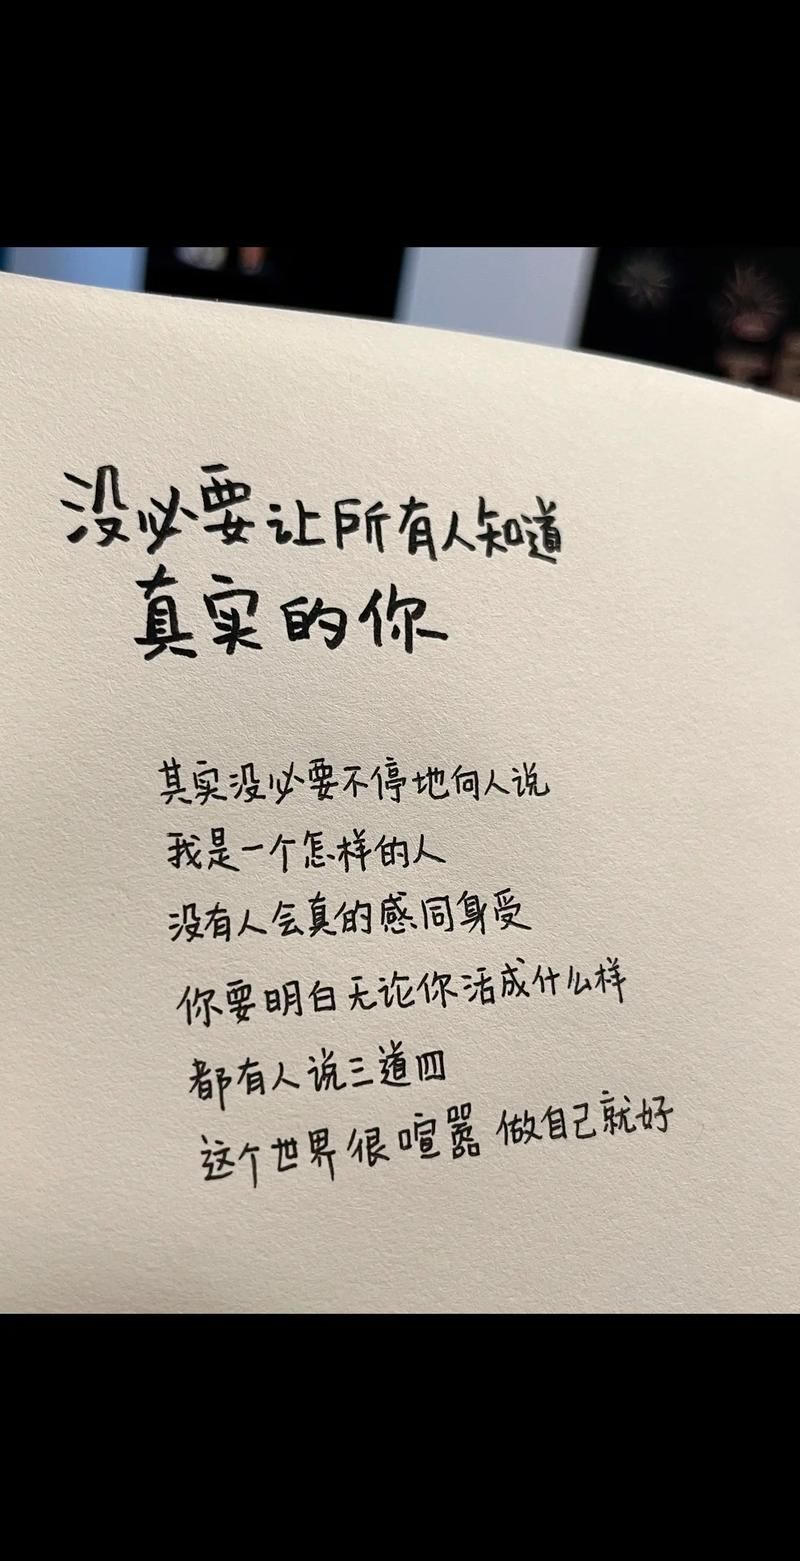 没必要让所有人知道
真实的你
其实没必要不停地向人说
我是一个怎样的人
没有人会真的感同身受
你要明白无论你活成什么样
都有人说三道四
这个世界很喧嚣 做自己就好